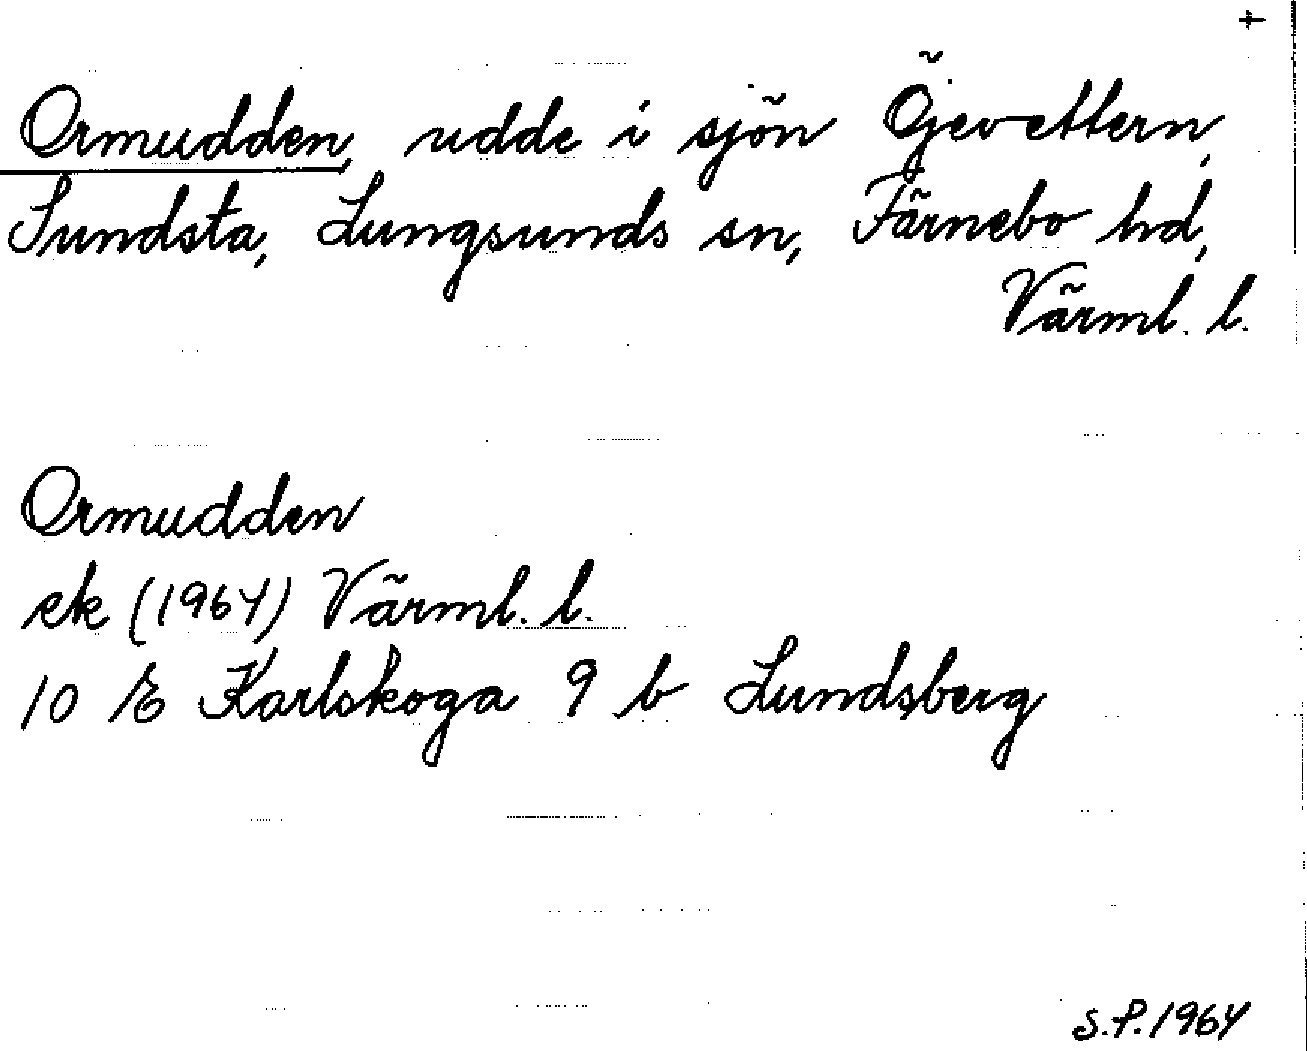 +
Ormudden, udde i sjön Öjevettern,
Sundsta, Lungsunds sn, Färnebo hd,
Värml. l.
Ormudden
ek (1964) Värml. l.
10 E Karlskoga 9 b Lundsberg
S.P. 1964